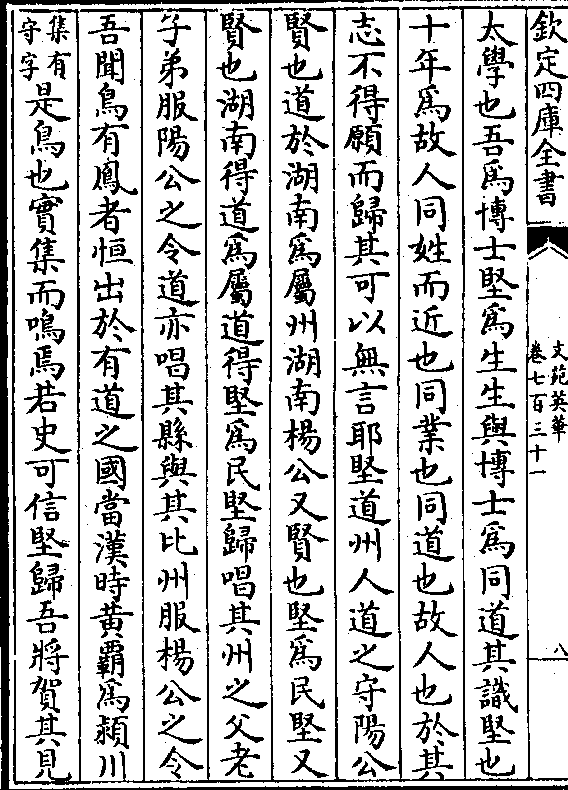 欽定四庫全書
文苑英華
卷七百三十一
八
太學也吾爲博士堅爲生生與博士爲同道其識堅也
十年爲故人同姓而近也同業也同道也故人也於其
志不得願而歸其可以無言耶堅道州人道之守陽公
賢也道於湖南爲屬州湖南楊公又賢也堅爲民堅又
賢也湖南得道爲屬道得堅爲民堅歸唱其州之父老
子弟服陽公之令道亦唱其縣與其比州服楊公之令
吾聞鳥有鳳者恒出於有道之國當漢時黃覇爲潁川
集有
守字
是鳥也實集而鳴焉若史可信堅歸吾將賀其見